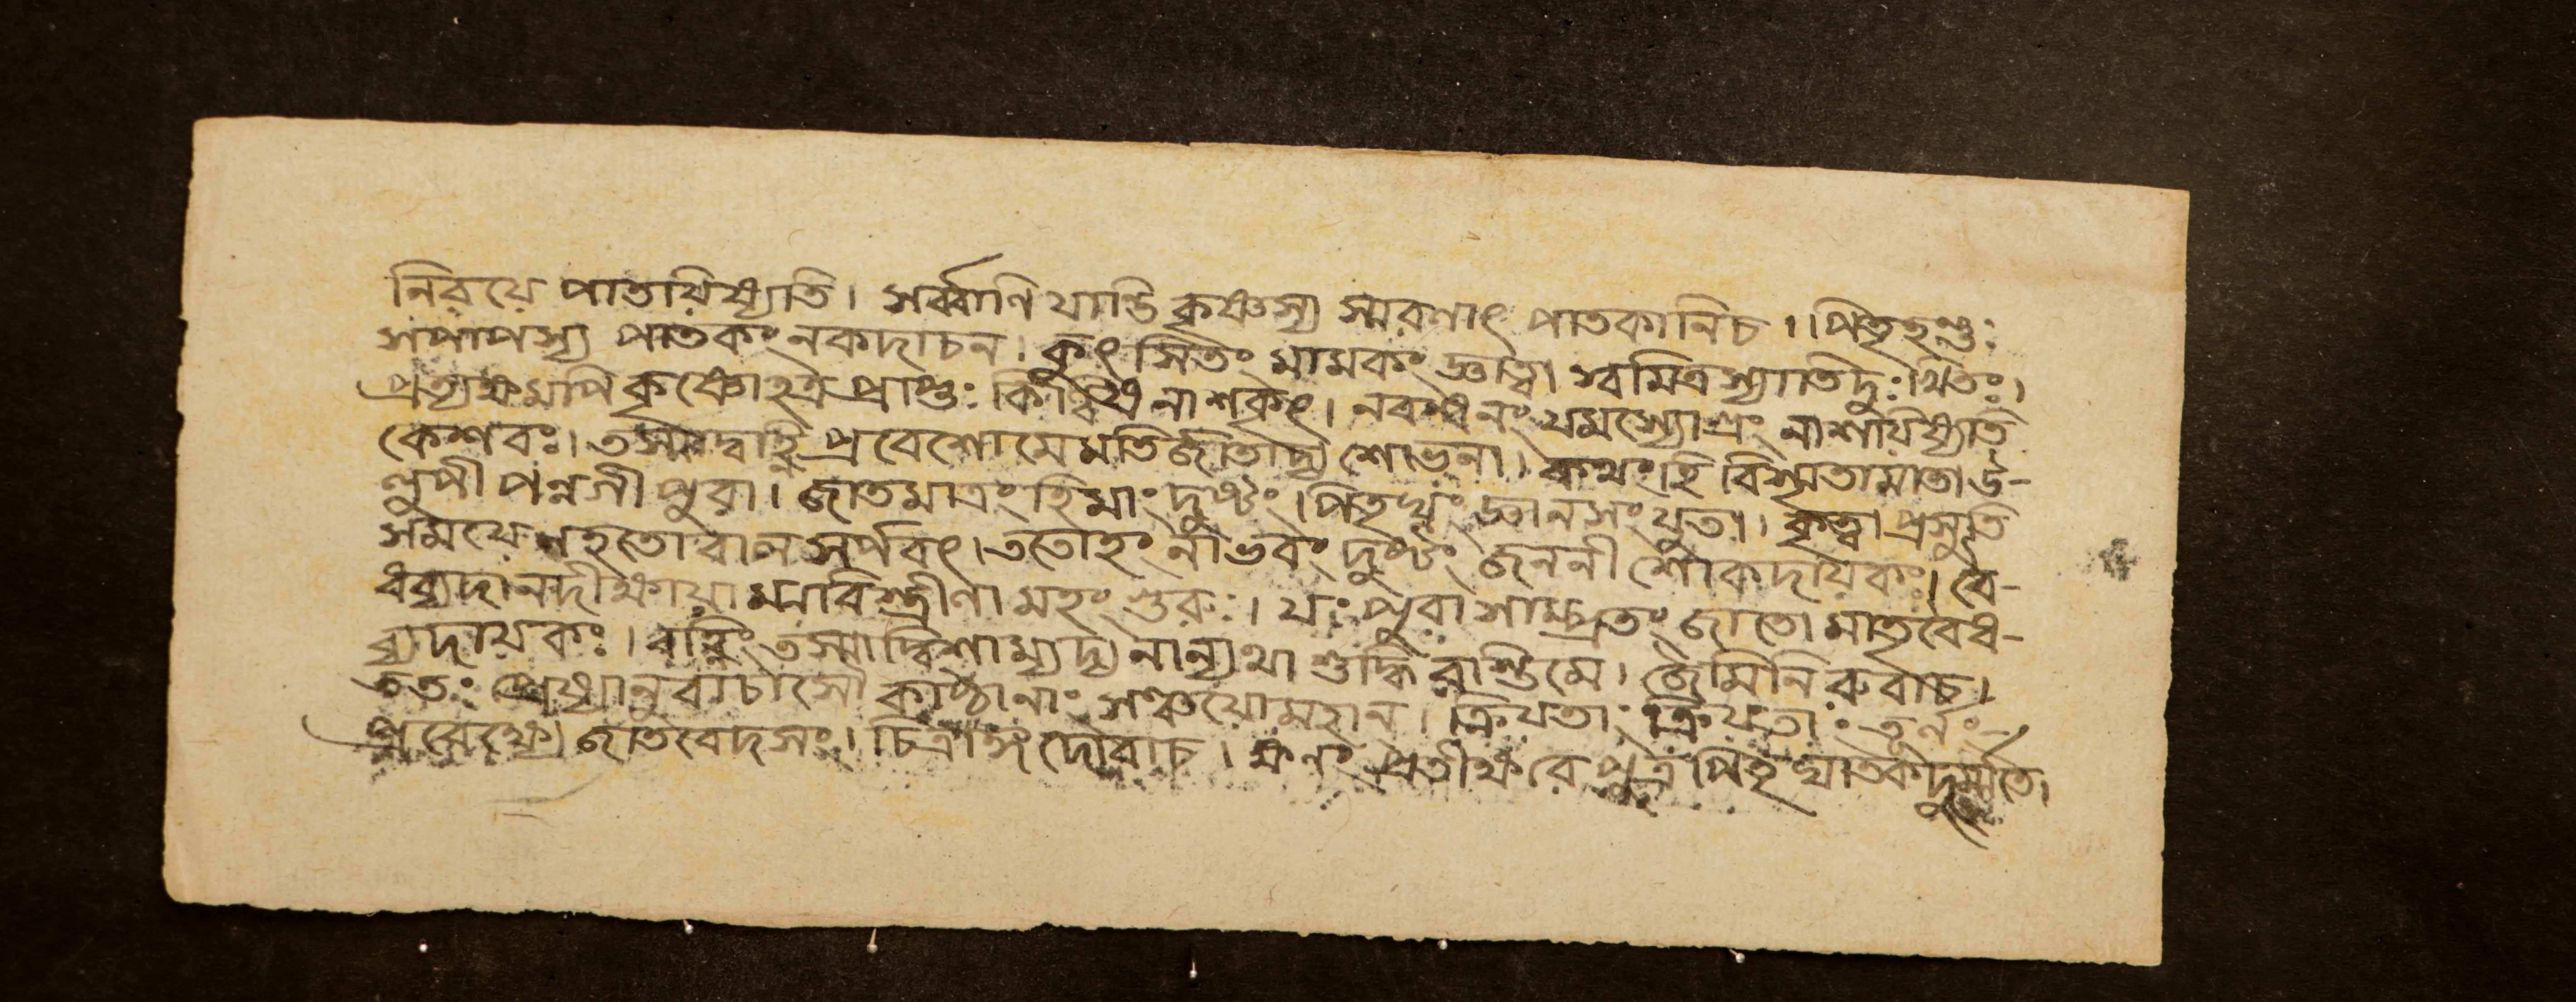 নিরয়ে পাতয়িষ্যতি। সর্ব্বাণি যান্তি কৃষ্ণস্য স্মরণাৎ পাতকানিচ।। পিতৃহন্তুঃ
সপাপস্য পাতকং নকদাচন। কুৎসিতং মামকং জ্ঞাত্বা স্বমিত্রস্যাতিদুঃখিতঃ।
প্রত্যক্ষমপি কৃষ্ণোহত্র প্রাপ্তঃ কিল্বিষ নাশকৃৎ। নবন্ধনং যমস্যোগ্রং নাশয়িষ্যতি
কেশবঃ। তস্মাদ্বহ্নি প্রবেশোমে মতির্জাতাদ্য শোভনা। কথংহি বিস্মৃতামাতা উ-
লুপী পন্নগী পুরা। জাতমাত্রংহিমাং দুষ্টং। পিতৃঘ্নং জ্ঞানসংযুতা। কৃত্বা প্রসূতি
সময়ে নহতো বাল সর্পবৎ। ততোহং নাভবং দুষ্টং জননী শোকদায়কঃ। বৈ-
ধব্যদানদীক্ষায়ামরিস্ত্রীণামহং গুরুঃ। যঃ পুরা সাম্প্রতং জাতো মাতৃবৈধ-
ব্যদায়কঃ। বহ্নিং তস্মাদ্বিশাম্যদ্য নান্যথা শুদ্ধি রাস্তিমে। জৈমিনি রুবাচ।
ততঃ প্রেষ্যানুবাচাসৌ কাষ্ঠানাং সঞ্চয়োমহান। ক্রিয়তাং ক্রিয়তাং তূর্নং
প্রবেক্ষ্যে জাতবেদসং। চিত্রাঙ্গদোবাচ। ক্ষণং প্রতীক্ষরে পুত্র পিতৃঘাতকদুর্ম্মতে।